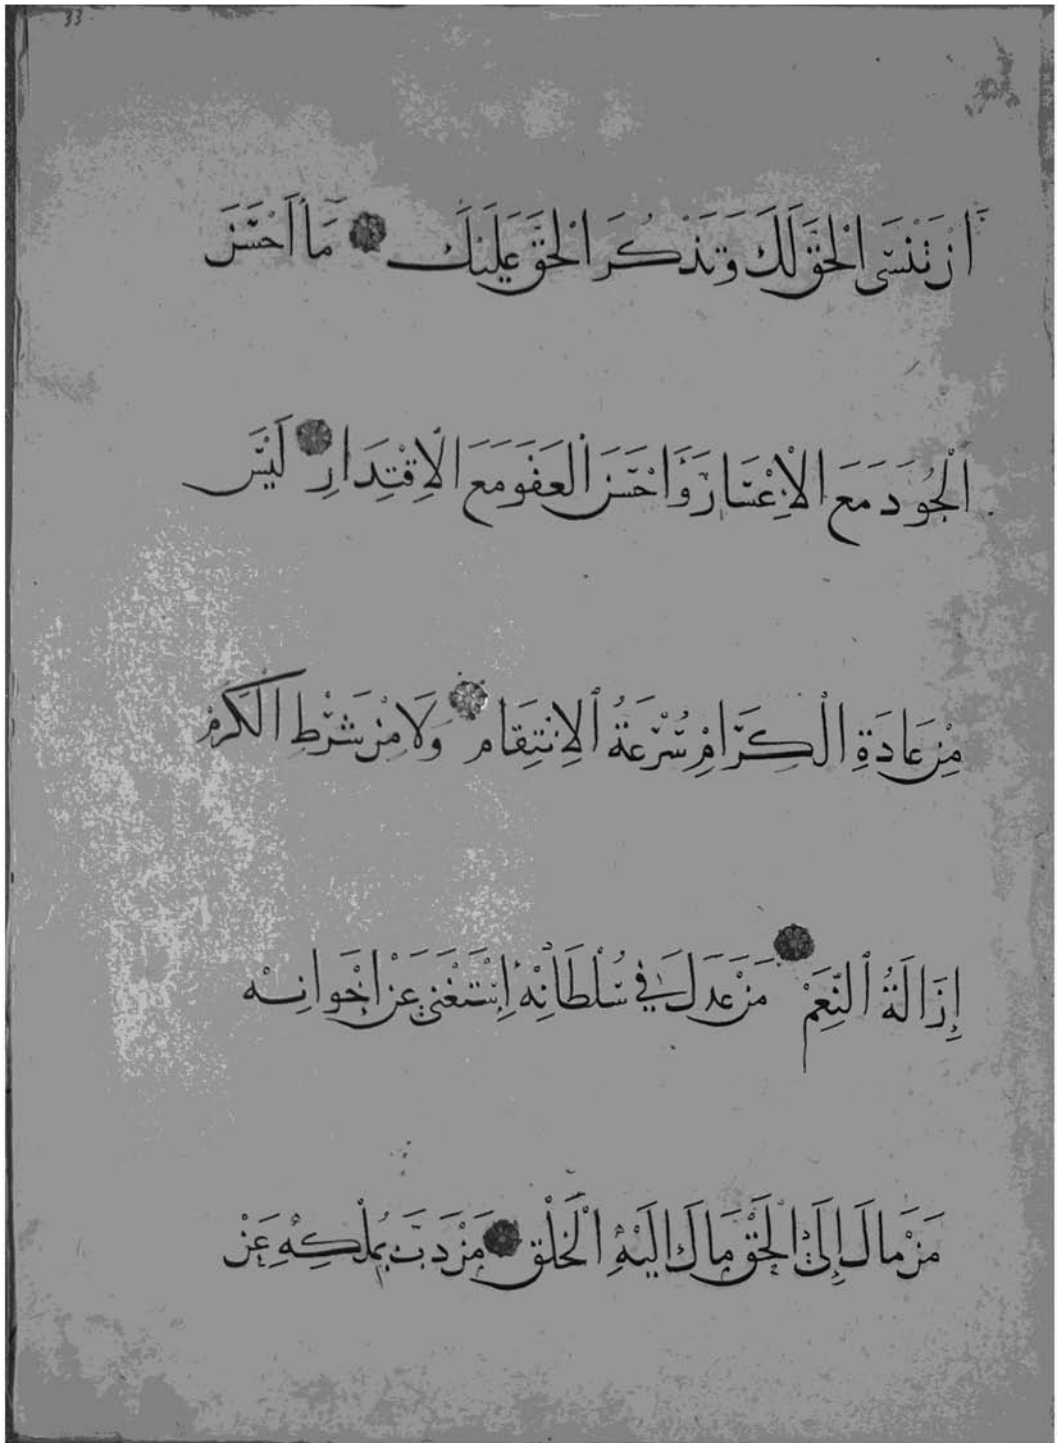 33
اَنْ تَنْسَى الْحَقَّ لَكَ وَتَذْكُرَ الْحَقَّ عَلَيْكَ مَا اَحْسَنَ
الْجُودَ مَعَ الْاِعْسَارِ وَاَحْسَنَ الْعَفْوَ مَعَ الْاِقْتِدَارِ لَيْسَ
مِنْ عَادَةِ الْكِرَامِ سُرْعَةُ الْاِنْتِقَامِ وَلَا مِنْ شَرْطِ الْكَرَمِ
إِزَالَةُ النِّعَمِ مَنْ عَدَلَ فِي سُلْطَانِهِ اِسْتَغْنَى عَنْ اِخْوَانِهْ
مَنْ مَالَ إِلَى الْحَقِّ مَالَ اِلَيْهِ الْخَلْقُ مَنْ دَبَّ بِمُلْكِهِ عَنْ